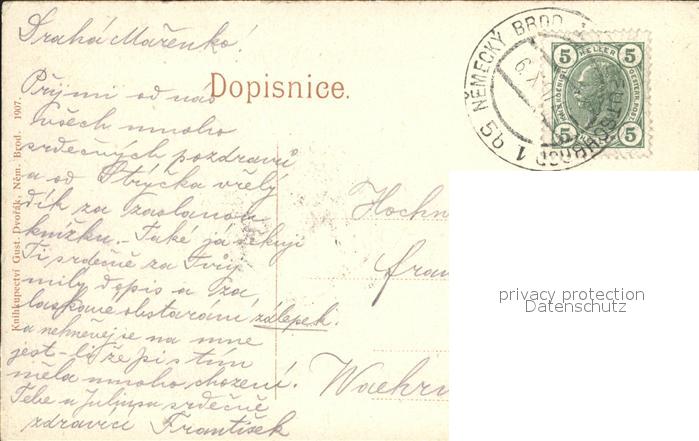 Drahá Mařenko!
Přijmi od nás
všech mnoho
srdečných pozdravů
a od Strýčka vřelý
dík za zaslanou
knížku. Také já děkuji
Ti srdečně za Tvůj
milý dopis a za
laskavé obstarání zálepek.
a nehněvej se na mne
jest-li že jsi s tím
měla mnoho chození.
Tebe a Julipsa srdečně
zdravící František
Dopisnice.
Knihkupectví Gust. Dvořák, Něm. Brod. 1907.
NĚMECKÝ BROD
6.X
5b
1
5 HELLER 5
5 5
Hochn
fran
Waehri
privacy protection
Datenschutz